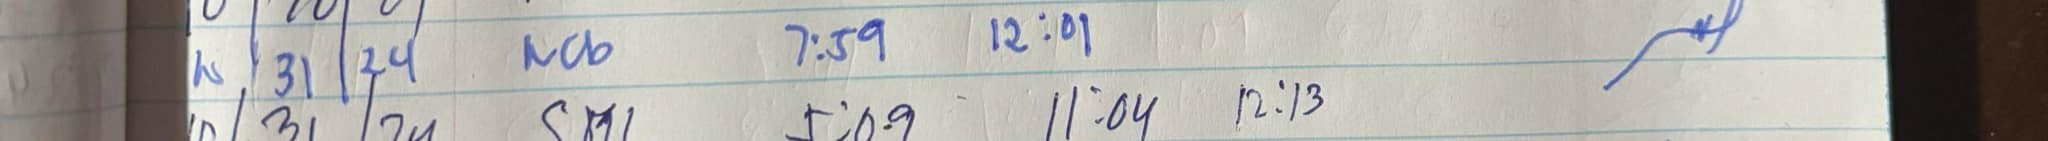 10/31/24 NCb 7:59 12:01
10/31/24 5:09 11:04 12:13